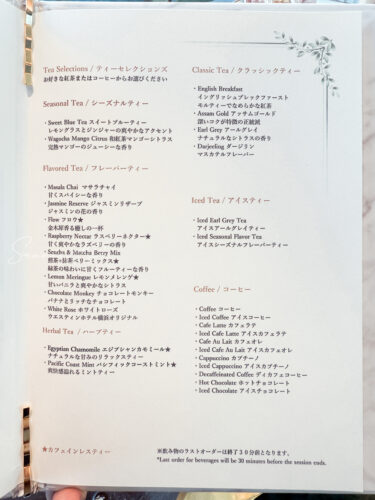 Tea Selections / ティーセレクションズ
お好きな紅茶またはコーヒーからお選びください
Seasonal Tea / シーズナルティー
・Sweet Blue Tea スイートブルーティー
レモングラスとジンジャーの爽やかなアクセント
・Wagocha Mango Citrus 和紅茶マンゴーシトラス
完熟マンゴーのジューシーな香り
Flavored Tea / フレーバーティー
・Masala Chai マサラチャイ
甘くスパイシーな香り
・Jasmine Reserve ジャスミンリザーブ
ジャスミンの花の香り
・Flow フロウ★
金木犀香る癒しの一杯
・Raspberry Nectar ラズベリーネクター★
甘く爽やかなラズベリーの香り
・Sencha & Matcha Berry Mix
煎茶&抹茶ベリーミックス★
緑茶の味わいに甘くフルーティーな香り
・Lemon Meringue レモンメレンゲ★
甘いバニラと爽やかなシトラス
・Chocolate Monkey チョコレートモンキー
バナナとリッチなチョコレート
・White Rose ホワイトローズ
ウエスティンホテル横浜オリジナル
Herbal Tea / ハーブティー
・Egyptian Chamomile エジプシャンカモミール★
ナチュラルな甘みのリラックスティー
・Pacific Coast Mint パシフィックコーストミント★
爽快感溢れるミントティー
★カフェインレスティー
Classic Tea / クラシックティー
・English Breakfast
イングリッシュブレックファースト
モルティーでなめらかな紅茶
・Assam Gold アッサムゴールド
深いコクが特徴の正統派
・Earl Grey アールグレイ
ナチュラルなシトラスの香り
・Darjeeling ダージリン
マスカテルフレーバー
Iced Tea / アイスティー
・Iced Earl Grey Tea
アイスアールグレイティー
・Iced Seasonal Flavor Tea
アイスシーズナルフレーバーティー
Coffee / コーヒー
・Coffee コーヒー
・Iced Coffee アイスコーヒー
・Cafe Latte カフェラテ
・Iced Cafe Latte アイスカフェラテ
・Cafe Au Lait カフェオレ
・Iced Cafe Au Lait アイスカフェオレ
・Cappuccino カプチーノ
・Iced Cappuccino アイスカプチーノ
・Decaffeinated Coffee ディカフェコーヒー
・Hot Chocolate ホットチョコレート
・Iced Chocolate アイスチョコレート
※飲み物のラストオーダーは終了30分前となります。
*Last order for beverages will be 30 minutes before the session ends.